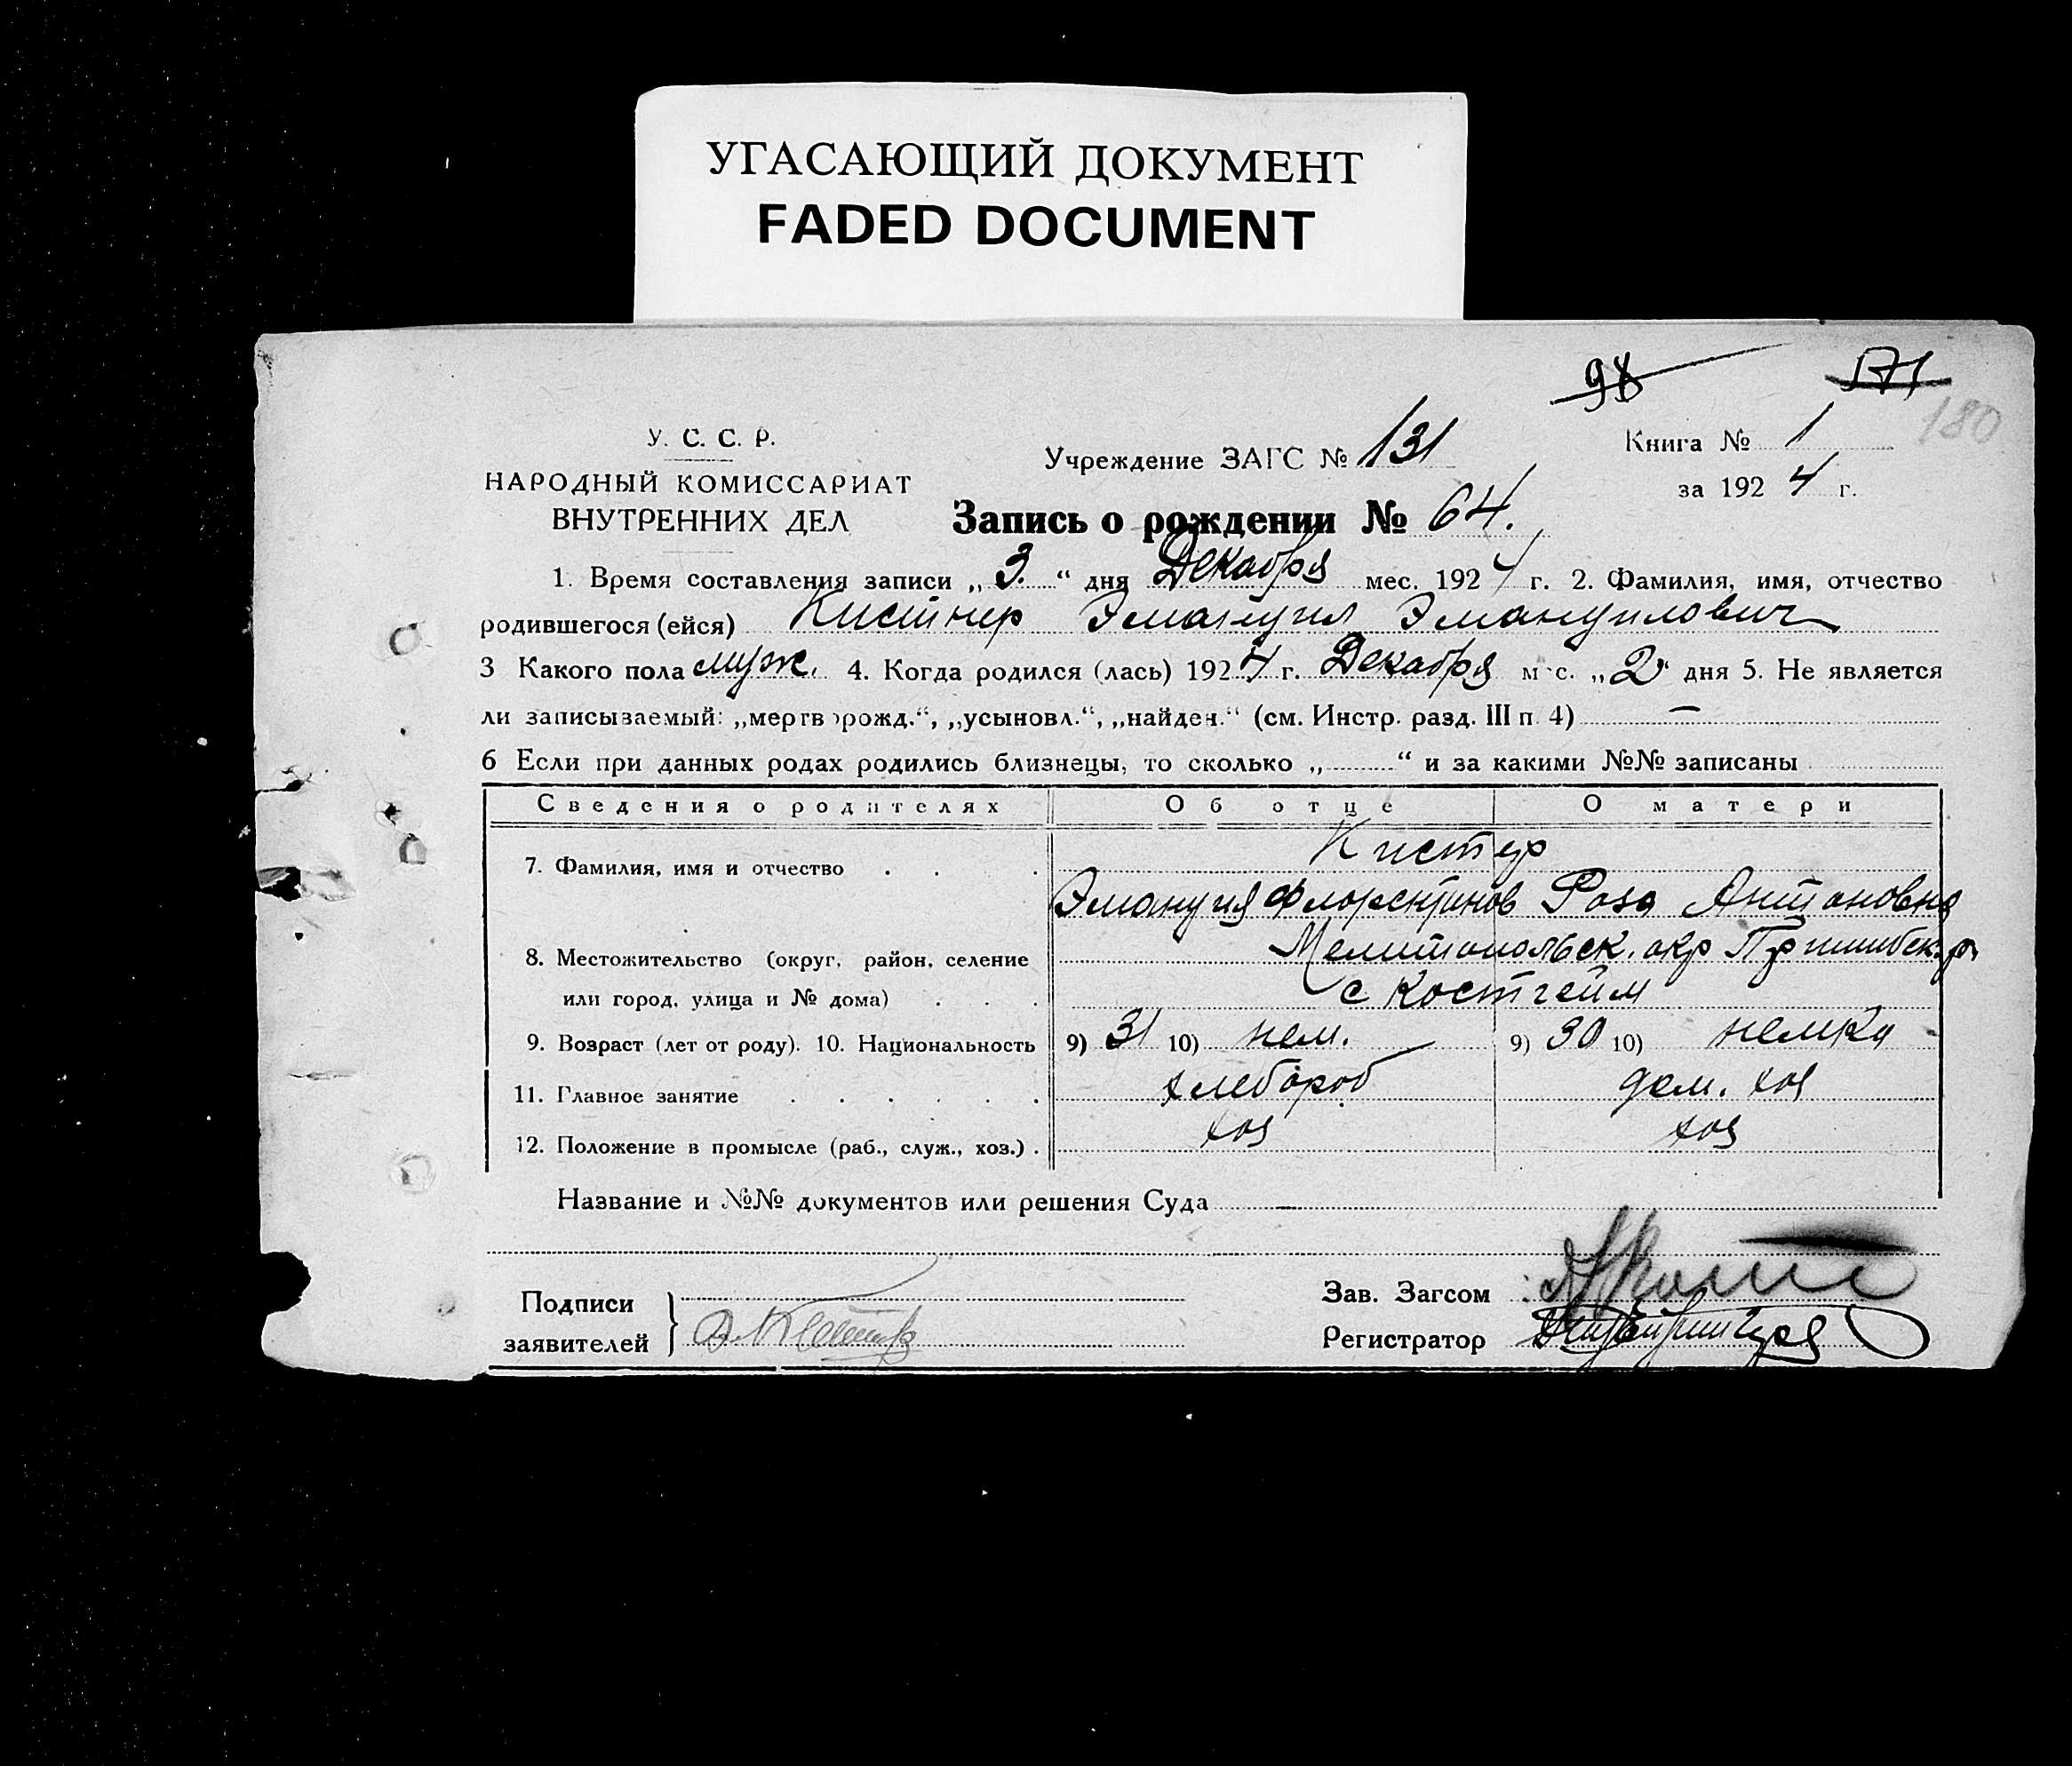 УГАСАЮЩИЙ ДОКУМЕНТ
FADED DOCUMENT
98
171
180
У. С. С. Р.
НАРОДНЫЙ КОМИССАРИАТ
ВНУТРЕННИХ ДЕЛ
Учреждение ЗАГС № 131
Книга № 1
за 1924 г.
Запись о рождении № 64.
1. Время составления записи „3.“ дня Декабря мес. 1924 г. 2. Фамилия, имя, отчество
родившегося (ейся) Кистнер Эмануил Эмануилович
3 Какого пола муж. 4. Когда родился (лась) 1924 г. Декабря мес. „2“ дня 5. Не является
ли записываемый: „мертворожд.“, „усыновл.“, „найден.“ (см. Инстр. разд. III п. 4) —
6 Если при данных родах родились близнецы, то сколько „ “ и за какими №№ записаны
Сведения о родителях Об отце О матери
7. Фамилия, имя и отчество Кистнер
Эмануил Флорентинов Роза Антоновна
8. Местожительство (округ, район, селение Мелитопольск. окр Пришибск. р
или город, улица и № дома) с Костгейм
9. Возраст (лет от роду). 10. Национальность 9) 31 10) нем. 9) 30 10) немка
11. Главное занятие хлебороб дом. хоз
12. Положение в промысле (раб., служ., хоз.) хоз хоз
Название и №№ документов или решения Суда —
Подписи
заявителей
Зав. Загсом
Регистратор